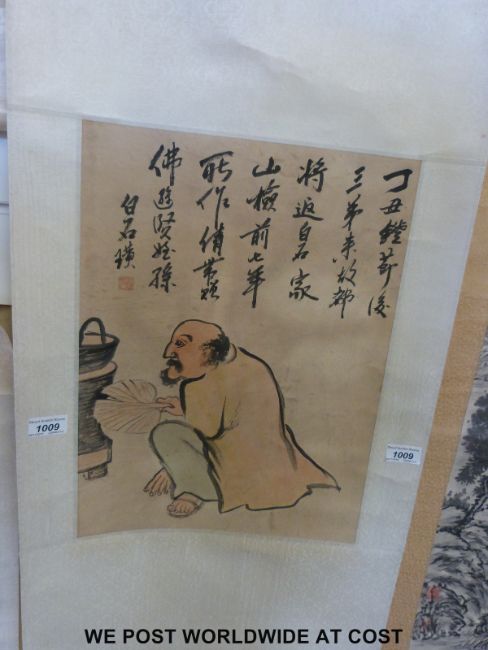 丁丑鐙節後
三弟來故都
將返白石家
山檢前七年
所作倩帶贈
佛遊賢姪孫
白石璜
1009
1009
WE POST WORLDWIDE AT COST